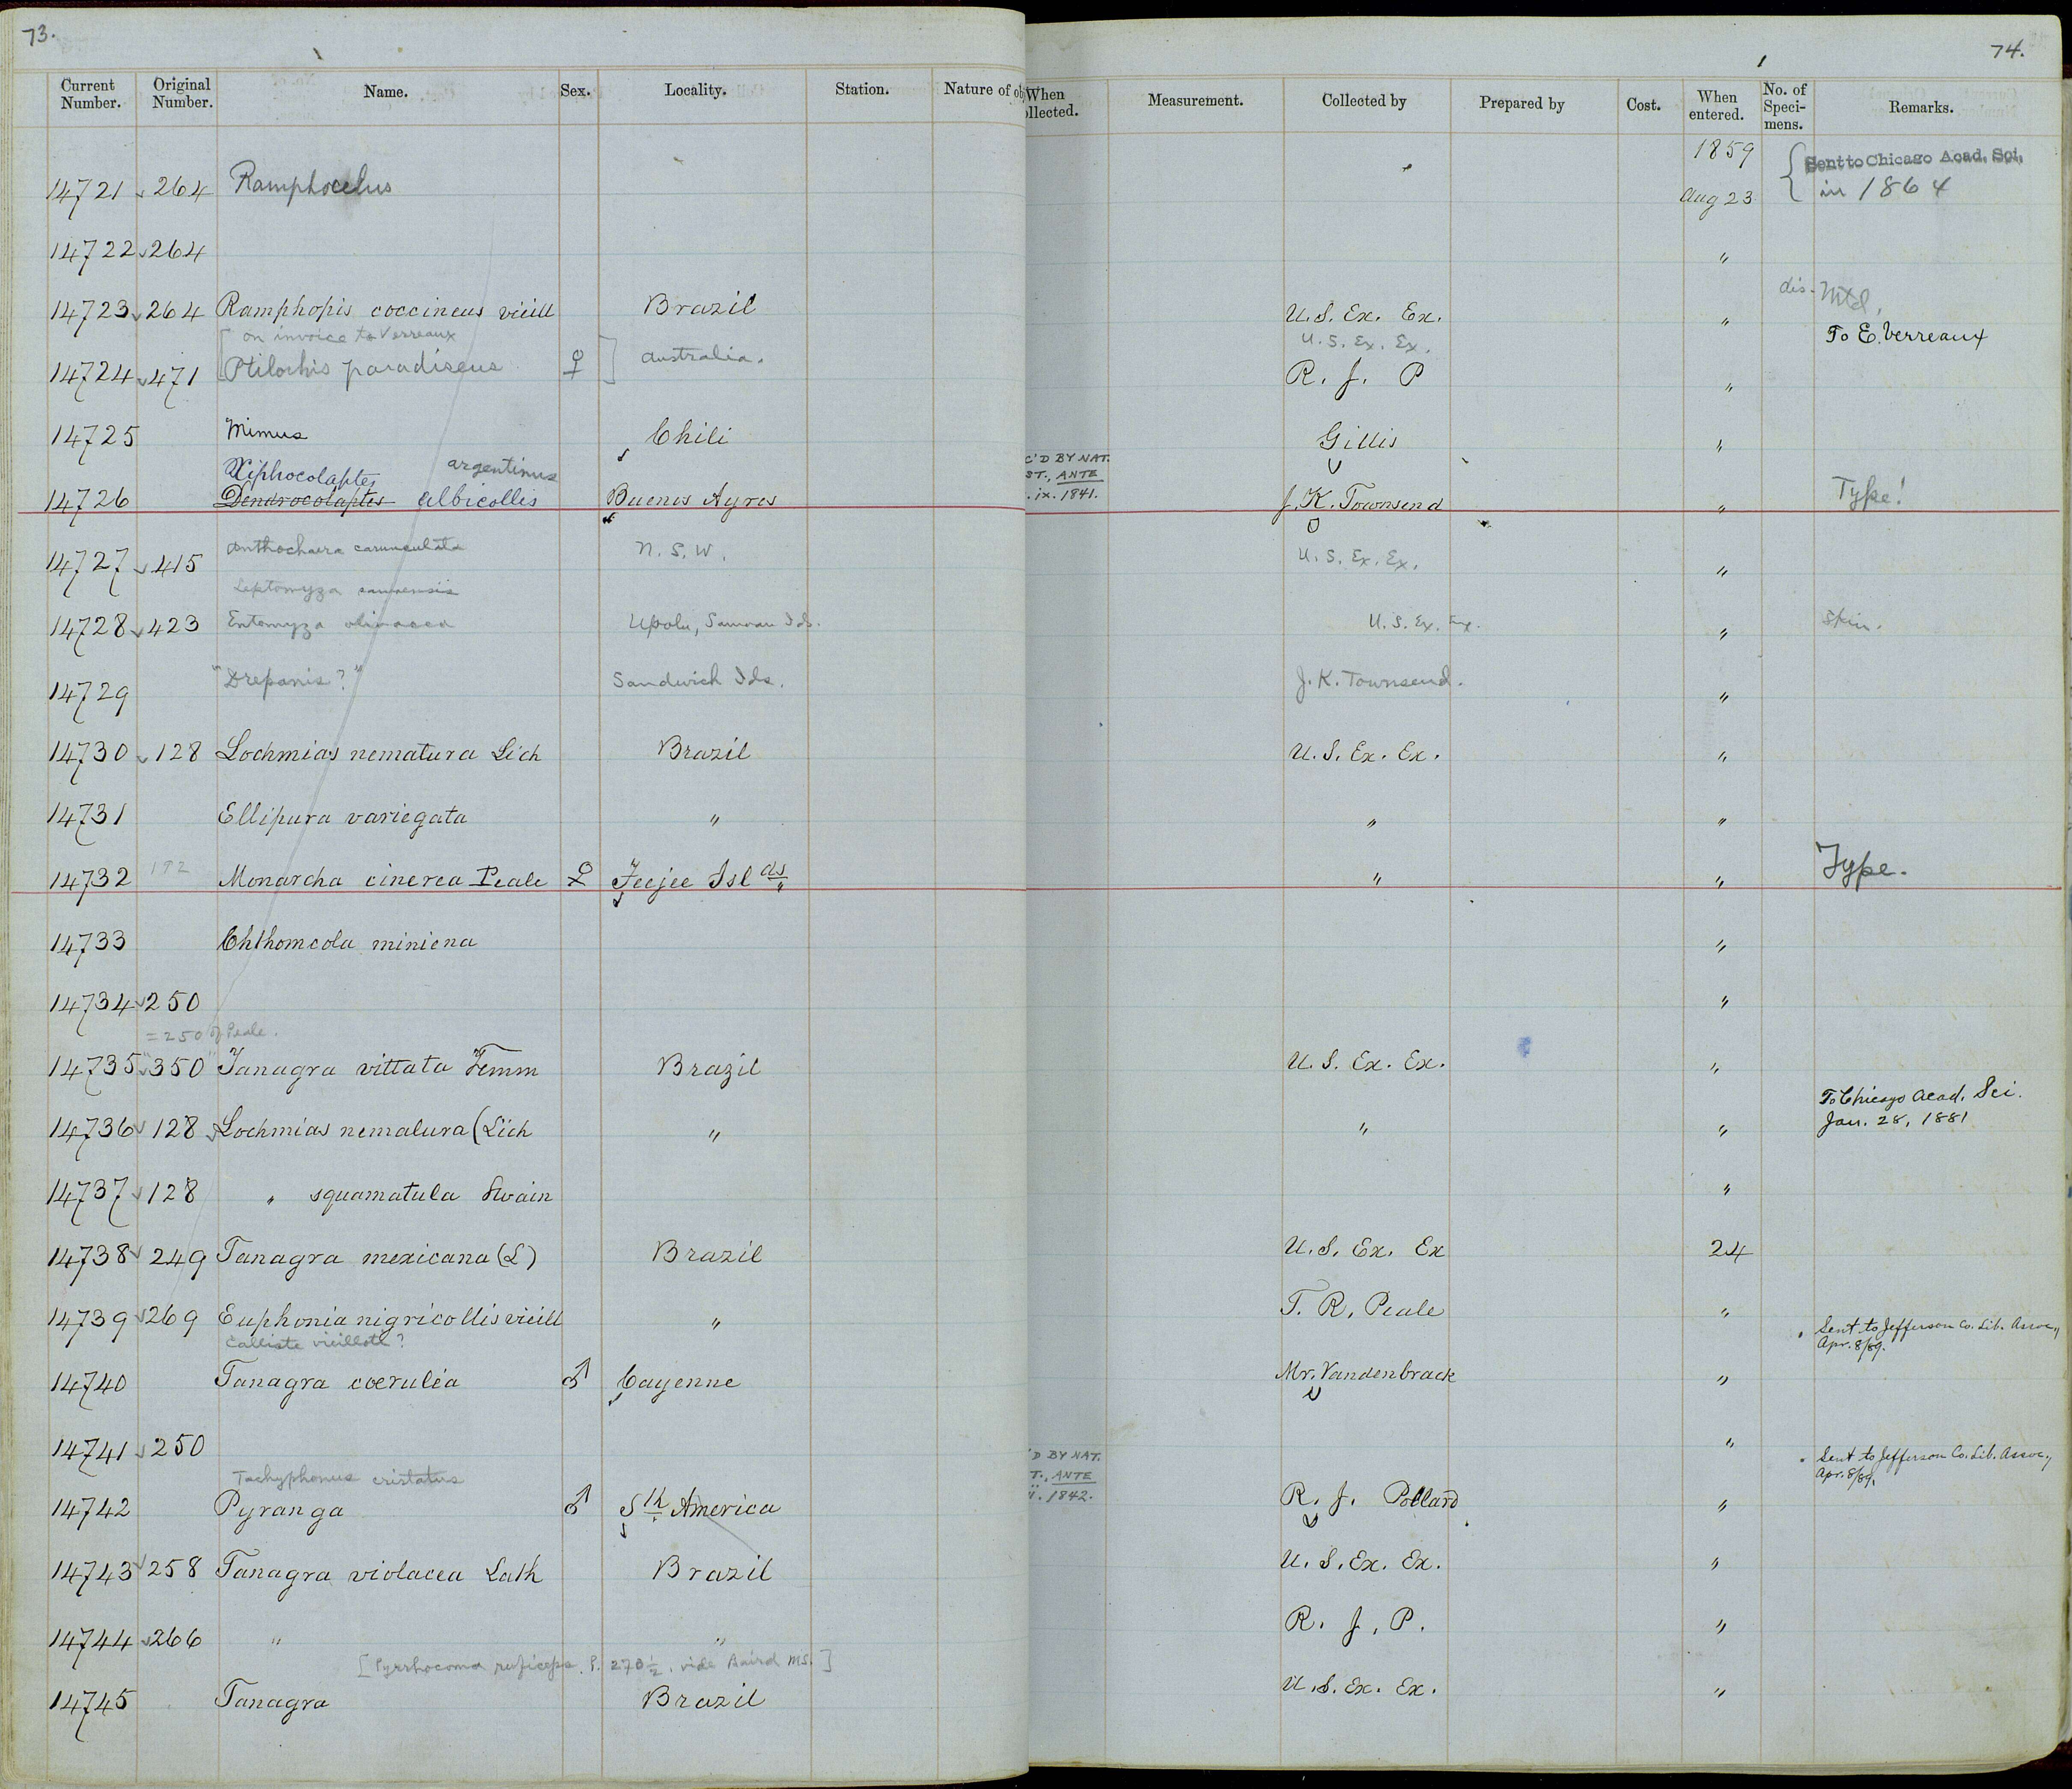 73.
74.
Current Number. Original Number. Name. Sex. Locality. Station. Nature of ob
When ollected. Measurement. Collected by Prepared by Cost. When entered. No. of Speci-mens. Remarks.
1859
14721 264 Ramphocelus Aug 23 { Sent to Chicago Acad. Sci. in 1864
14722 264 "
14723 264 Ramphopis coccineus vieill Brazil U.S. Ex. Ex. " dis. Mtd.
To E. Verreaux
[on invoice to Verreaux U.S. Ex. Ex.
14724 471 Ptilorhis paradiseus ♀ ] Australia. R. J. P "
14725 Mimus Chili Gillis "
Xiphocolaptes argentinus
C'D BY NAT. ST., ANTE . ix. 1841.
14726 Dendrocolaptes albicollis Buenos Ayres J. K. Townsend " Type!
14727 415 Anthochaera carunculata N. S. W. U. S. Ex. Ex. "
Leptomyza samoensis
14728 423 Entomyza olivacea Upolu, Samoan Ids. U. S. Ex. Exp. " Skin.
14729 "Drepanis?" Sandwich Ids. J. K. Townsend. "
14730 128 Lochmias nematura Lich Brazil U. S. Ex. Ex. "
14731 Ellipura variegata " " "
14732 Monarcha cinerea Peale ♀ Feejee Islds " " Type.
14733 Chthomcola miniena "
14734 250 "
= 250 of Peale.
14735 "350" Tanagra vittata Temm Brazil U. S. Ex. Ex. "
14736 128 Lochmias nematura (Lich " " " To Chicago Acad. Sci. Jan. 28, 1881
14737 128 " squamatula Swain "
14738 249 Tanagra mexicana (L) Brazil U. S. Ex. Ex 24
14739 269 Euphonia nigricollis vieill " T. R. Peale " Sent to Jefferson Co. Lib. Assoc., Apr. 8/89.
Calliste vieilloti?
14740 Tanagra coerulia ♂ Cayenne Mr. Vandenbrack "
14741 250 " Sent to Jefferson Co. Lib. Assoc., Apr. 8/89.
Tachyphonus cristatus
'D BY NAT. T., ANTE . 1842.
14742 Pyranga ♂ Sth America R. J. Pollard "
14743 258 Tanagra violacea Lath Brazil U. S. Ex. Ex. "
14744 266 " " R. J. P. "
[Pyrrhocoma ruficeps. P. 273½, vide Baird MS.]
14745 Tanagra Brazil U. S. Ex. Ex. "